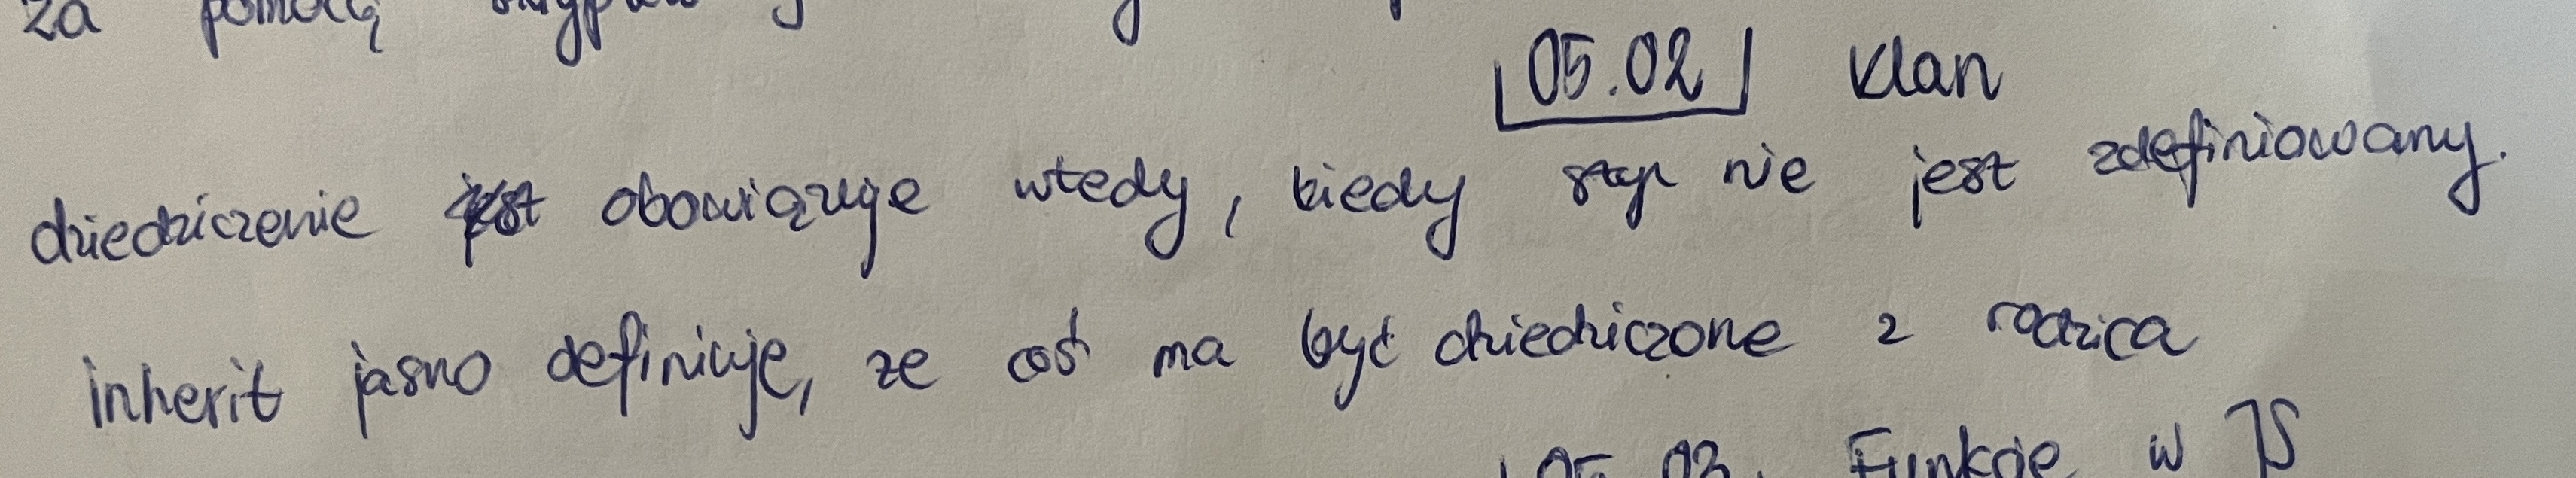 za pomocą
05.02 Klan
dziedziczenie jest obowiązuje wtedy, kiedy styl nie jest zdefiniowany.
inherit jasno definiuje, ze coś ma być dziedziczone z rodzica
05.03. Funkcje w JS